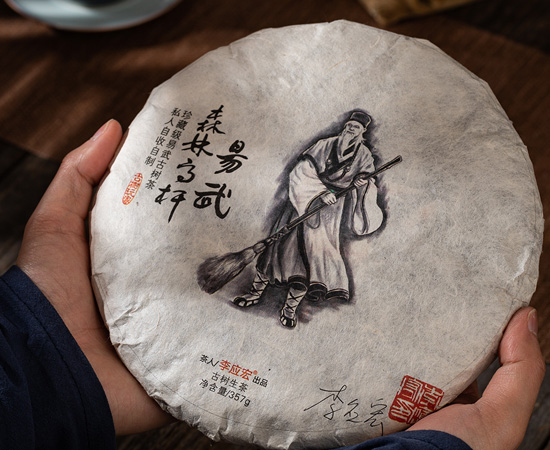 易武
森林高杆
珍藏级易武古树茶
私人自收自制
茶人/李应宏®出品
古树生茶
净含量/357g
李应宏